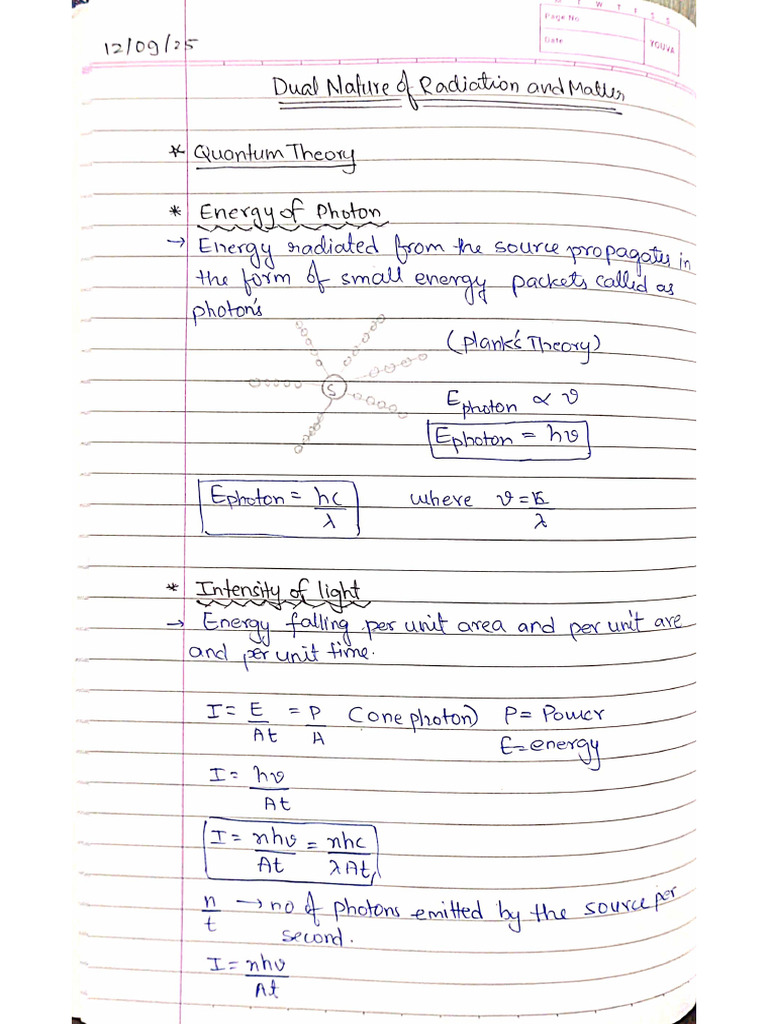 M T W T F S S
Page No.
Date
YOUVA
12/09/25
Dual Nature of Radiation and Matter
* Quantum Theory
* Energy of Photon
→ Energy radiated from the source propagates in
the form of small energy packets called as
photon's
(Plank's Theory)
S
Ephoton ∝ ν
Ephoton = hν
Ephoton = hc/λ where ν = c/λ
* Intensity of light
→ Energy falling per unit area and per unit are
and per unit time.
I = E/At = P/A (one photon) P = Power
E = energy
I = hν/At
I = nhν/At = nhc/λAt
n/t → no of photons emitted by the source per
second.
I = nhν/At